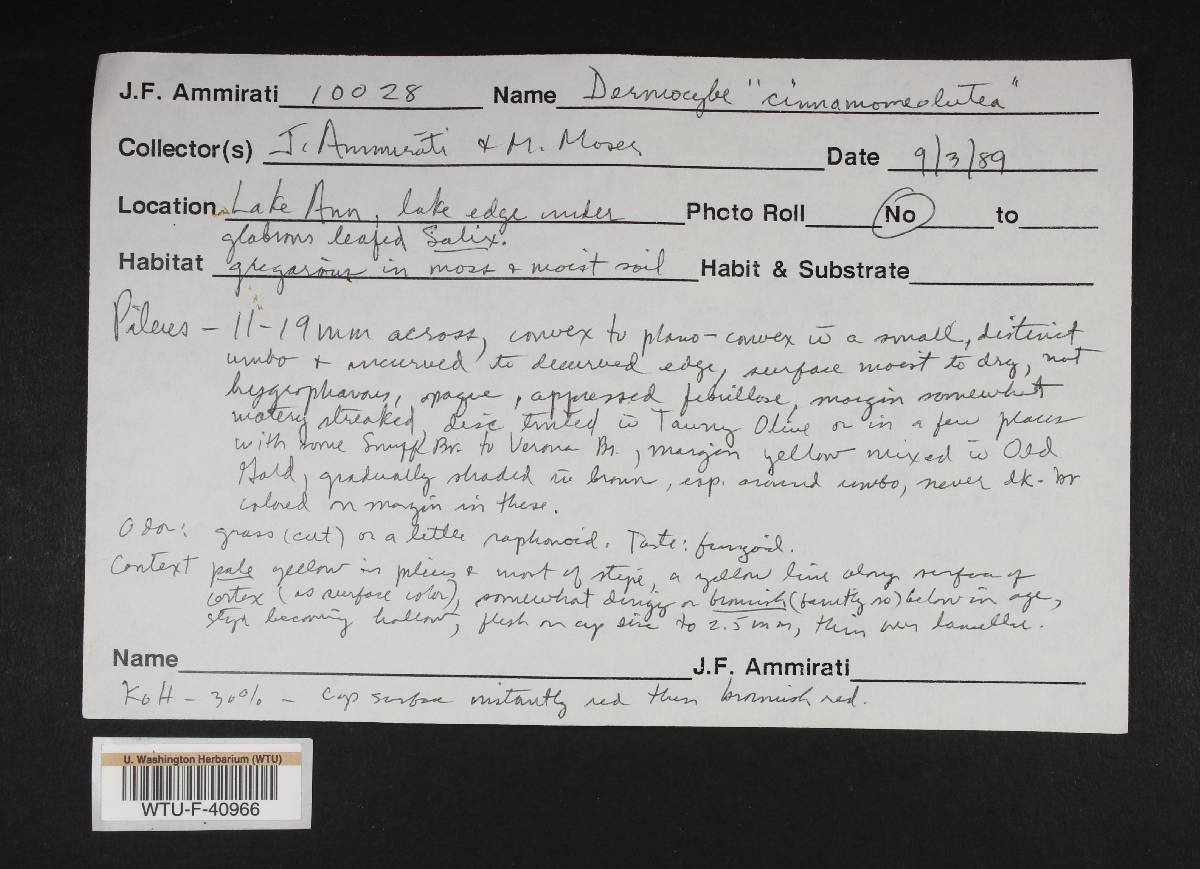 J.F. Ammirati 10028 Name Dermocybe "cinnamomeolutea"
Collector(s) J. Ammirati & M. Moser Date 9/3/89
Location Lake Ann, lake edge under Photo Roll No to
glabrous leafed Salix.
Habitat gregarious in moss & moist soil Habit & Substrate
Pileus – 11–19 mm across, convex to plano-convex w̄ a small, distinct
umbo & incurved to decurved edge, surface moist to dry, not
hygrophanous, opaque, appressed fibrillose, margin somewhat
watery streaked, disc tinted w̄ Tawny Olive or in a few places
with some Snuff Br. to Verona Br., margin yellow mixed w̄ Old
Gold, gradually shaded w̄ brown, esp. around umbo, never dk-br
colored on margin in these.
Odor: grass (cut) or a little raphanoid. Taste: fungoid.
Context pale yellow in pileus & most of stipe, a yellow line along surface of
cortex (as surface color), somewhat dingy or brownish (faintly so) below in age,
stipe becoming hollow, flesh on cap disc to 2.5 mm, thin over lamellae.
Name J.F. Ammirati
KOH – 30% – cap surface instantly red then brownish red.
U. Washington Herbarium (WTU)
WTU-F-40966